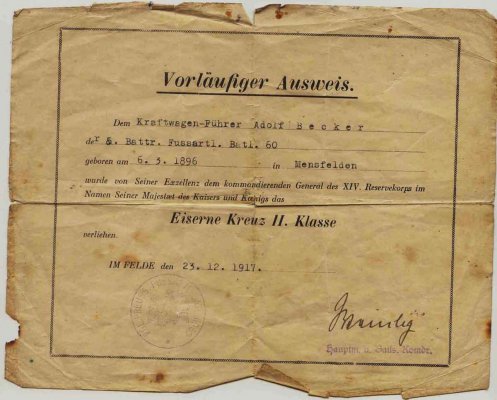 Vorläufiger Ausweis.
Dem Kraftwagen-Führer Adolf Becker
der &. Battr. Fussartl. Batl. 60
geboren am 6. 3. 1896 in Mensfelden
wurde von Seiner Exzellenz dem kommandierenden General des XIV. Reservekorps im
Namen Seiner Majestæt des Kaisers und Kœnigs das
Eiserne Kreuz II. Klasse
verliehen.
IM FELDE den 23. 12. 1917.
Hauptm. u. Batls. Komdr.